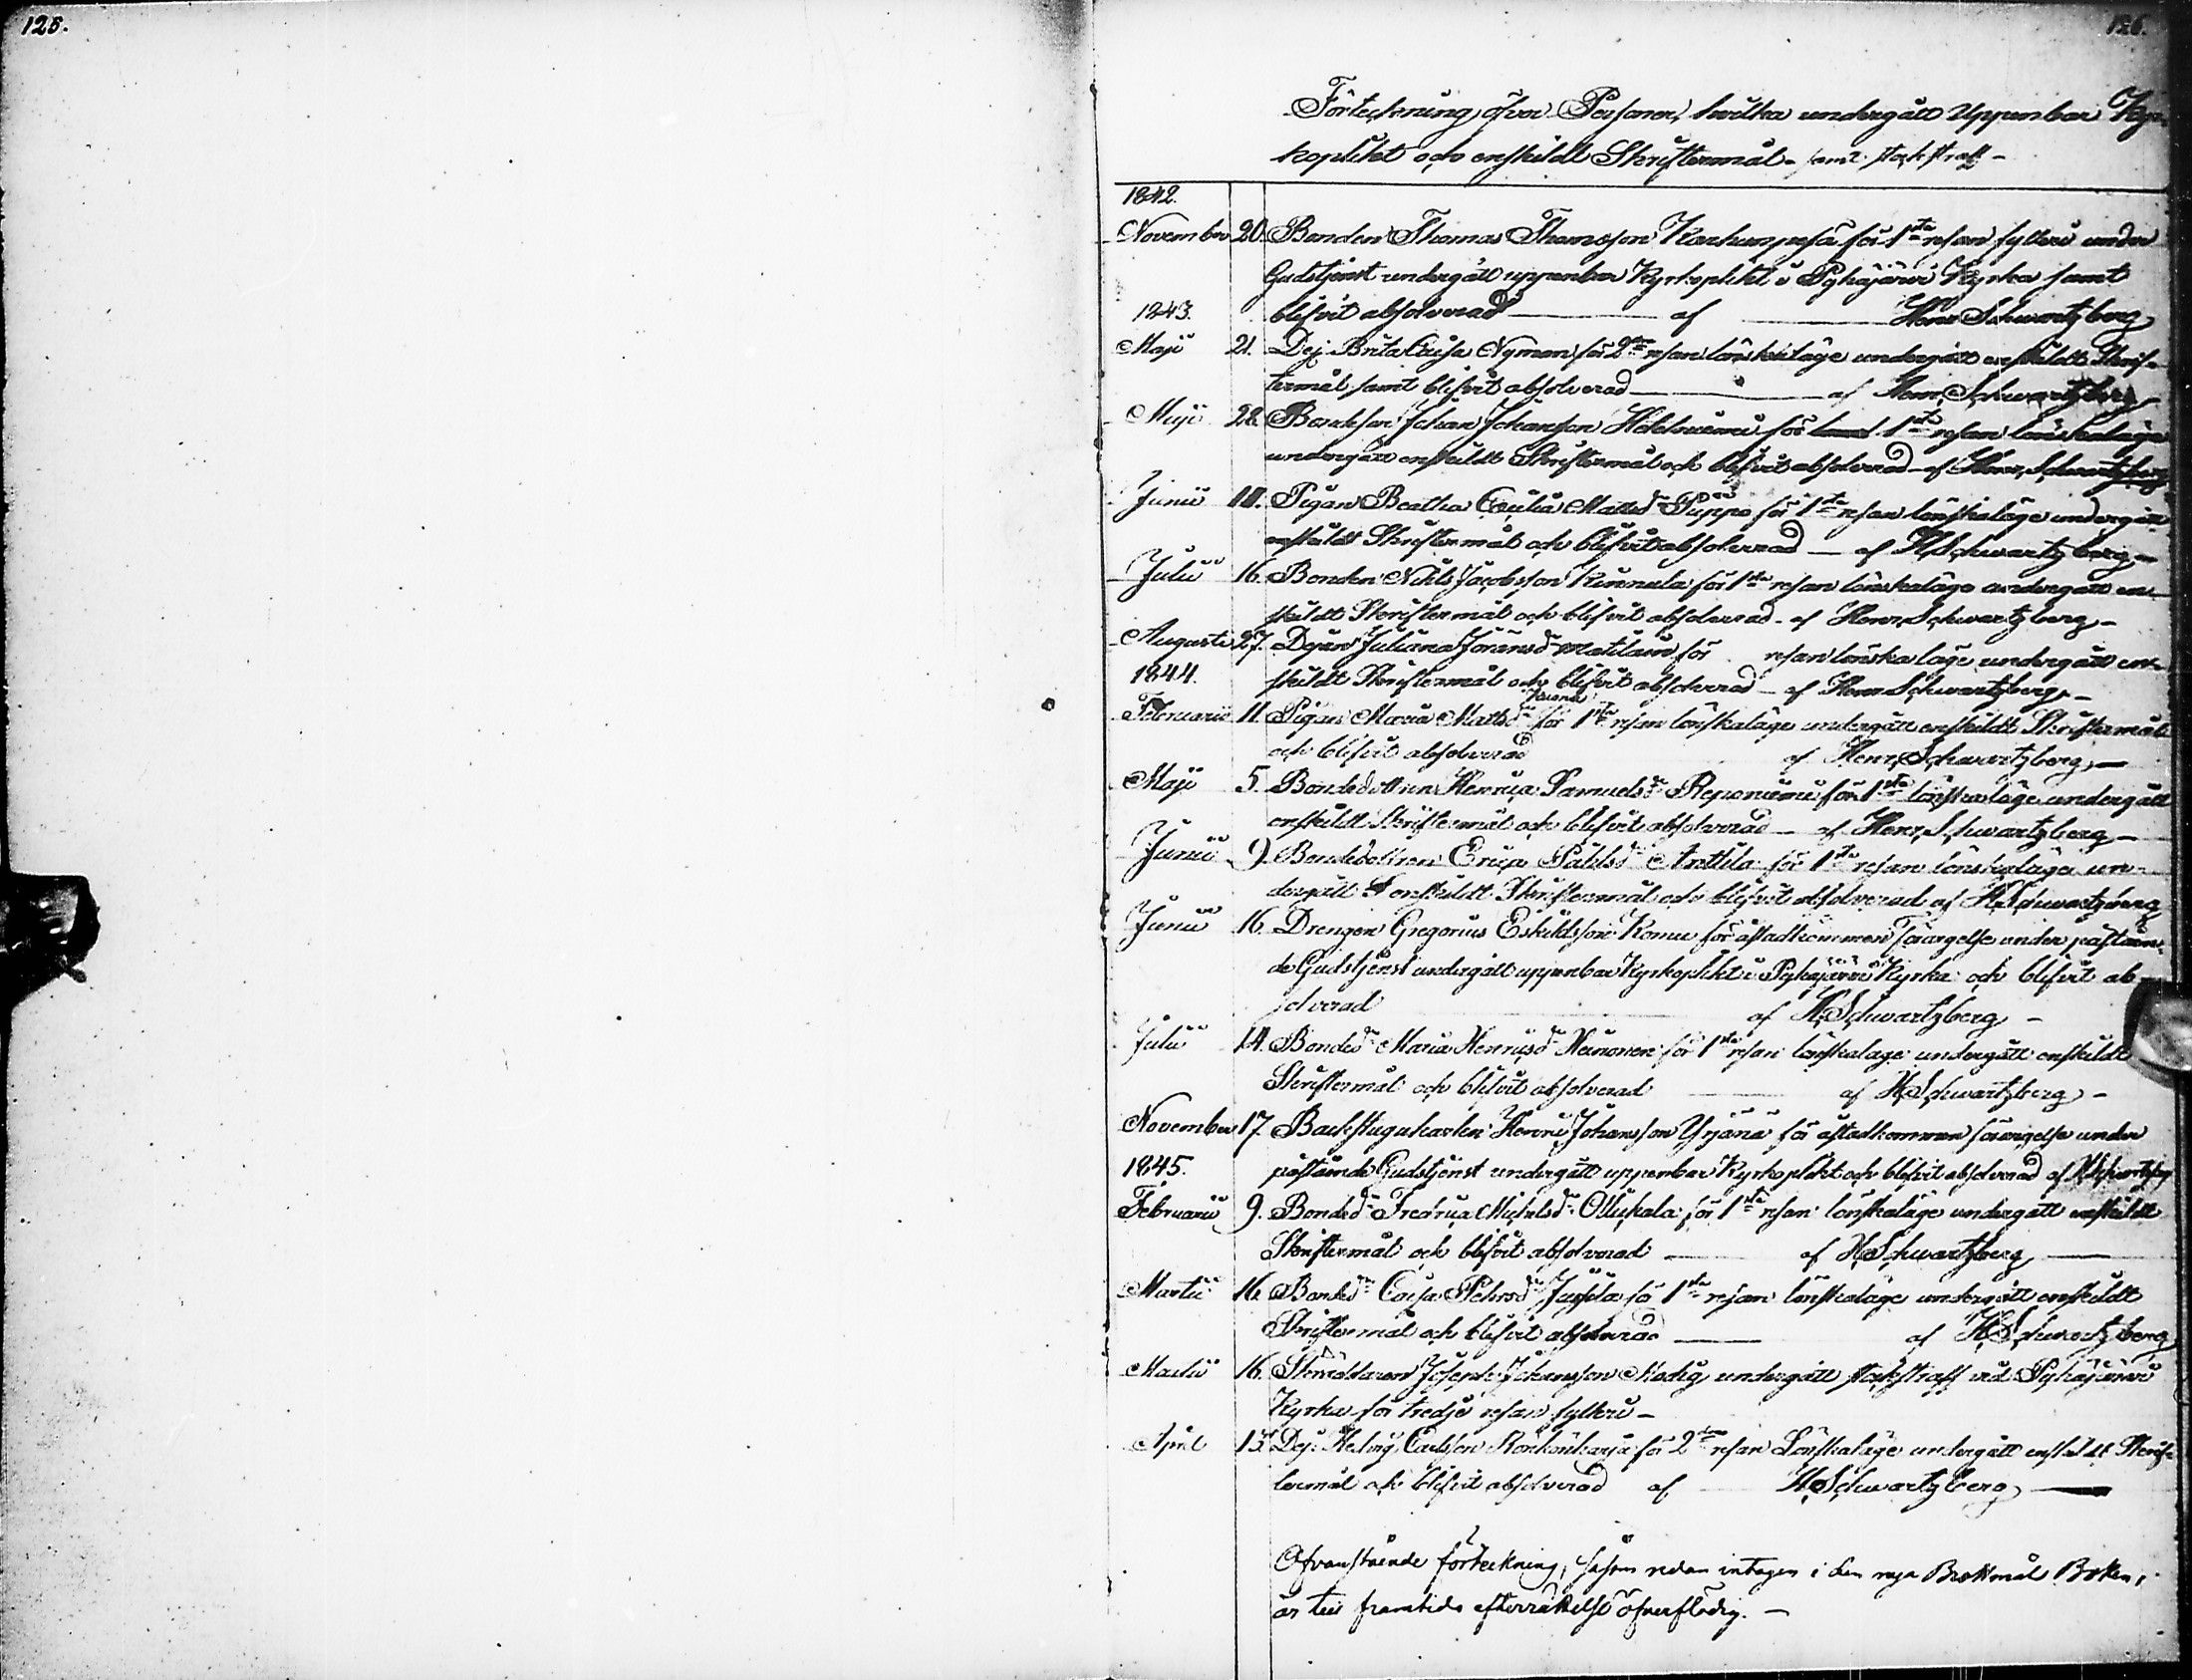 125.
126.
Förteckning öfver Personer, hvilka undergått Uppenbar Kyr-
koplikt och enskildt Skriftermål samt stockstraff -
1842.
November 20. Bonden Thomas Thomasson Karhunpesä för 1sta resan fylleri under
Gudstjenst undergått uppenbar Kyrkoplikt i Pyhäjärvi Kyrka samt
1843. blifvit absolverad af Henr Schwartzberg
Maji 21. Dej. Brita Caisa Nyman för 2dra resan lönskaläge undergått enskildt Skrif-
termål samt blifvit absolverad af Henr Schwartzberg
Maji 28. Bondeson Johan Johansson för 1sta resan lönskaläge
undergått enskildt Skriftermål och blifvit absolverad af Henr Schwartzberg
Junii 11. Pigan Beatha Cecilia Mattsdr Piippo för 1sta resan lönskaläge undergått
enskildt Skriftermål och blifvit absolverad - af H Schwartzberg -
Julii 16. Bonden Nils Jacobsson Kinnula för 1sta resan lönskaläge undergått en-
skildt Skriftermål och blifvit absolverad - af Henr Schwartzberg -
Augusti 27. Dejan Juliana Göransdr Matilain för resan lönskaläge undergått en-
1844. skildt Skriftermål och blifvit absolverad - af Henr Schwartzberg -
Februarii 11. Pigan Maria Mattsdr för 1sta resan lönskaläge undergått enskildt Skriftermål
och blifvit absolverad af Henr Schwartzberg -
Maji 5. Bondedottren Henrica Samuelsdr Reponiemi för 1sta lönskaläge undergått
enskildt Skriftermål och blifvit absolverad - af Henr Schwartzberg -
Junii 9. Bondedottren Erica Påhlsdr Anttila för 1sta resan lönskaläge un-
dergått enskildt Skriftermål och blifvit absolverad af H Schwartzberg
Junii 16. Drengen Gregorius Eskildsson Komu för åstadkommen förargelse under påståen-
de Gudstjenst undergått uppenbar Kyrkoplikt i Pyhäjärvi Kyrka och blifvit ab-
solverad af H Schwartzberg -
Julii 14. Bondedr Maria Henricsdr Heinonen för 1sta resan lönskaläge undergått enskildt
Skriftermål och blifvit absolverad af H Schwartzberg -
November 17. Backstugukarlen Henric Johansson Yrjänä för åstadkommen förargelse under
1845. påstående Gudstjenst undergått uppenbar Kyrkoplikt och blifvit absolverad af H Schwartzberg
Februarii 9. Bondedr Fredrica Michelsdr Olliskala för 1sta resan lönskaläge undergått enskildt
Skriftermål och blifvit absolverad af H Schwartzberg
Martii 16. Bondedr Caisa Pehrsdr Juspla för 1sta resan lönskaläge undergått enskildt
Skriftermål och blifvit absolverad af H Schwartzberg
Martii 16. Skräddaren Joseph Johansson Modig undergått stockstraff vid Pyhäjärvi
Kyrka för tredje resan fylleri -
April 13. Dej. Hedvig Carlsson Rönkönharju för 2dra resan Lönskaläge undergått enskildt Skrif-
termål och blifvit absolverad af H Schwartzberg
Ofvanstående förteckning, såsom redan intagen i den nya Brottmåls Boken,
är till framtida efterrättelse öfverflödig. -